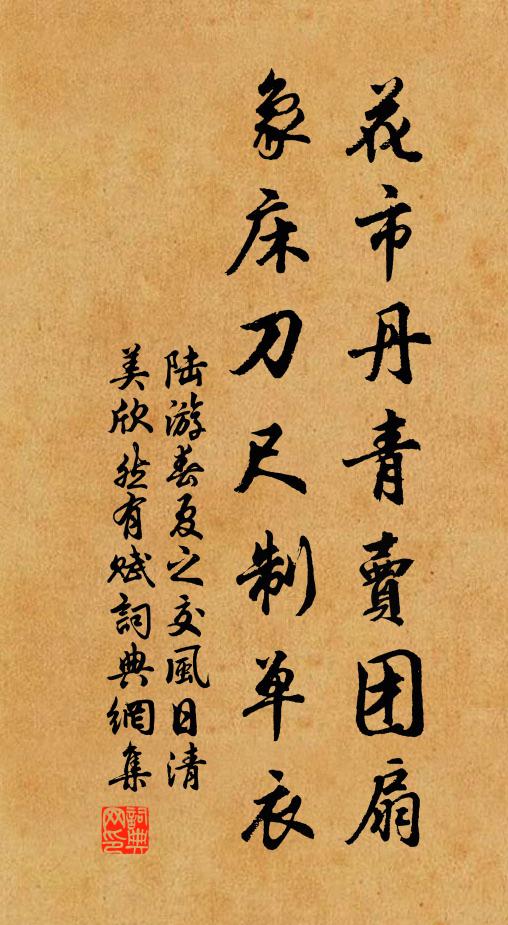 花市丹青賣团扇
象床刀尺制单衣
陆游春夏之交風日清
美欣然有赋詞典網集
詞典网印